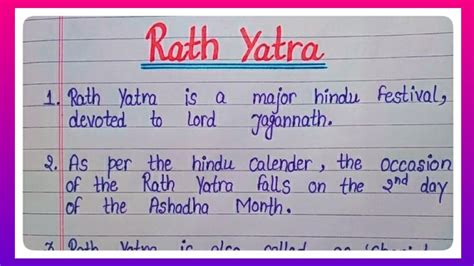 Rath Yatra
1. Rath Yatra is a major hindu festival,
devoted to Lord Jagannath.
2. As per the hindu calender, the occasion
of the Rath Yatra falls on the 2nd day
of the Ashadha Month.
Rath Yatra is also called as